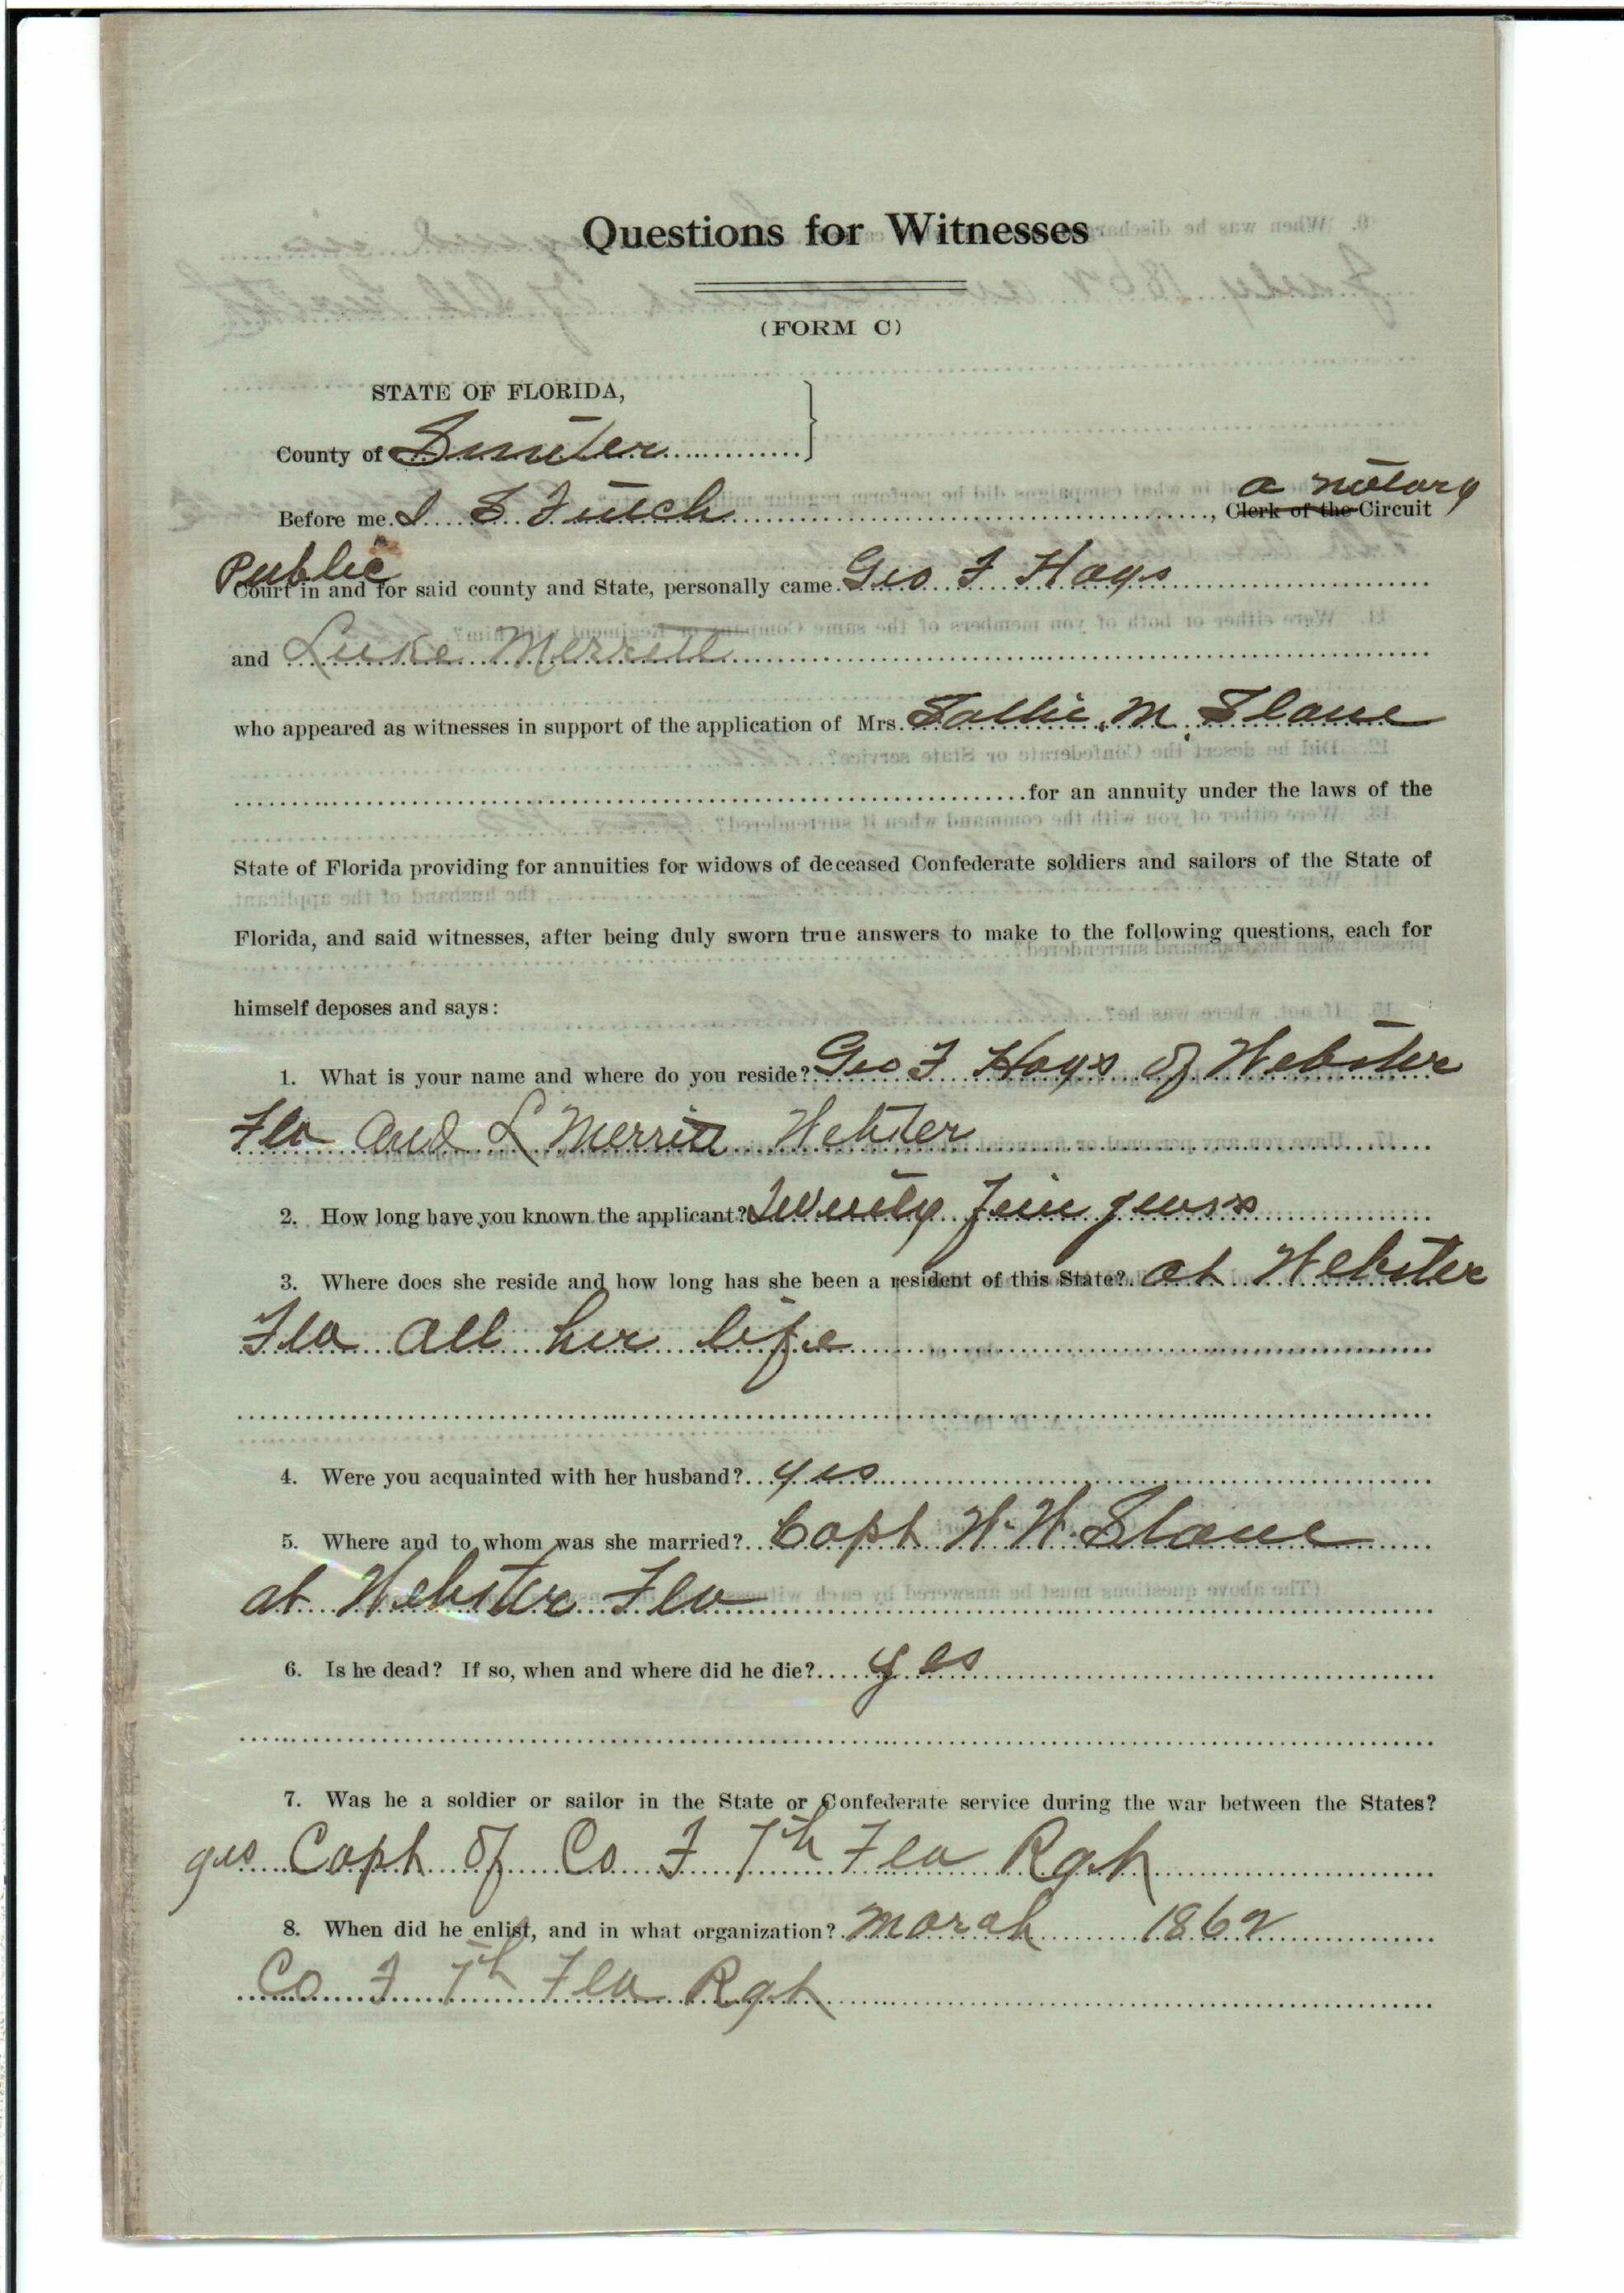 Questions for Witnesses
(FORM C)
STATE OF FLORIDA,
County of Sumter
a notary
Before me I S Futch, Clerk of the Circuit
Public
Court in and for said county and State, personally came Geo F Hays
and Luke Merritt
who appeared as witnesses in support of the application of Mrs. Sallie M Slone
for an annuity under the laws of the
State of Florida providing for annuities for widows of deceased Confederate soldiers and sailors of the State of
Florida, and said witnesses, after being duly sworn true answers to make to the following questions, each for
himself deposes and says:
1. What is your name and where do you reside? Geo F Hays of Webster
Fla and L Merritt Webster
2. How long have you known the applicant? Twenty years
3. Where does she reside and how long has she been a resident of this State? at Webster
Fla all her life
4. Were you acquainted with her husband? yes
5. Where and to whom was she married? Capt W. W. Slone
at Webster Fla
6. Is he dead? If so, when and where did he die? yes
7. Was he a soldier or sailor in the State or Confederate service during the war between the States?
yes Capt of Co F 7th Fla Rgt
8. When did he enlist, and in what organization? March 1862
Co F 7th Fla Rgt